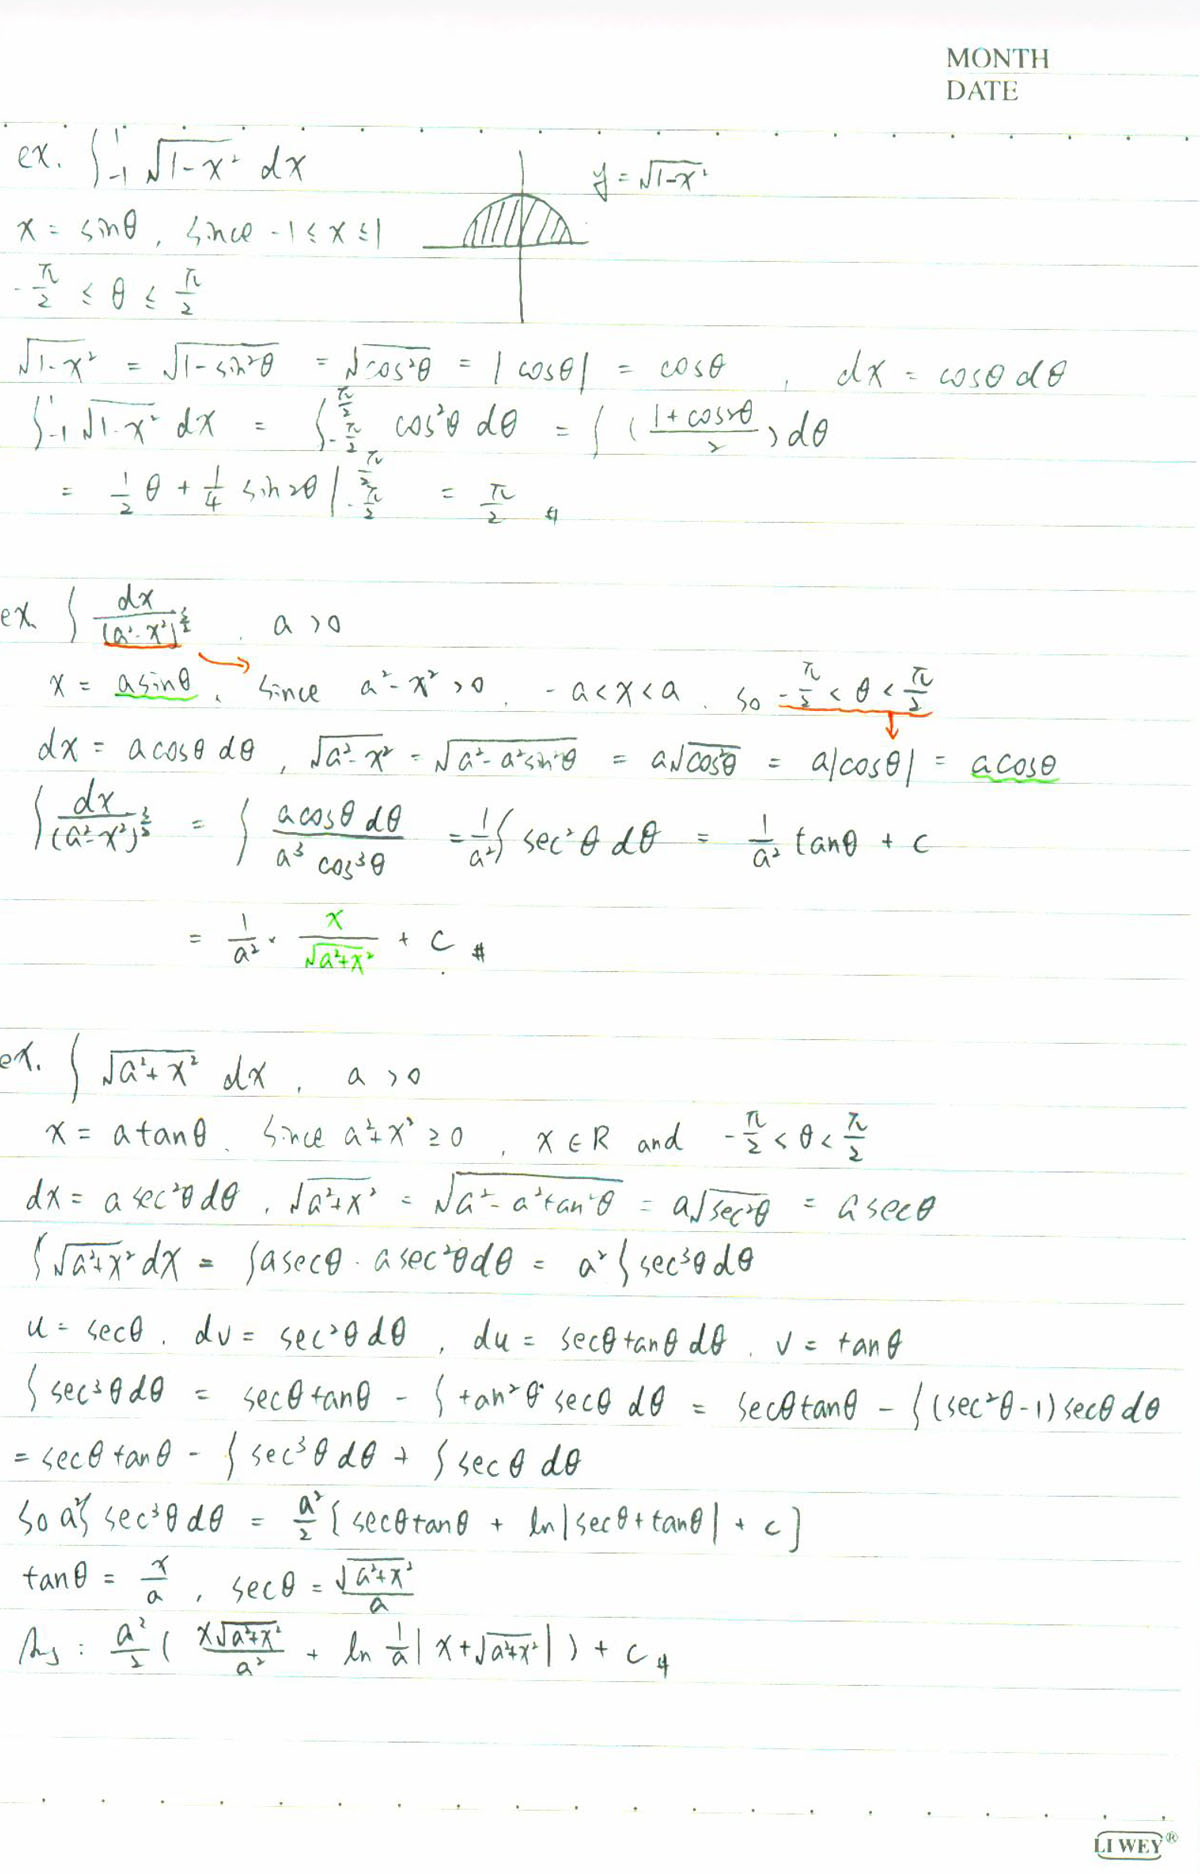 MONTH
DATE
ex. ∫_{-1}^{1} √(1-x²) dx
y = √(1-x²)
x = sinθ, since -1 ≤ x ≤ 1
-π/2 ≤ θ ≤ π/2
√(1-x²) = √(1-sin²θ) = √(cos²θ) = |cosθ| = cosθ, dx = cosθ dθ
∫_{-1}^{1} √(1-x²) dx = ∫_{-π/2}^{π/2} cos²θ dθ = ∫ ((1+cos2θ)/2) dθ
= 1/2 θ + 1/4 sin2θ |_{-π/2}^{π/2} = π/2 #
ex. ∫ dx/(a²-x²)^{3/2}, a > 0
x = a sinθ, since a²-x² > 0, -a < x < a. so -π/2 < θ < π/2
dx = a cosθ dθ, √(a²-x²) = √(a²-a²sin²θ) = a√(cos²θ) = a|cosθ| = a cosθ
∫ dx/(a²-x²)^{3/2} = ∫ (a cosθ dθ)/(a³ cos³θ) = 1/a² ∫ sec²θ dθ = 1/a² tanθ + c
= 1/a² · x/√(a²+x²) + c #
ex. ∫ √(a²+x²) dx, a > 0
x = a tanθ. since a²+x² ≥ 0, x ∈ R and -π/2 < θ < π/2
dx = a sec²θ dθ, √(a²+x²) = √(a²-a²tan²θ) = a√(sec²θ) = a secθ
∫ √(a²+x²) dx = ∫ a secθ · a sec²θ dθ = a² ∫ sec³θ dθ
u = secθ, dv = sec²θ dθ, du = secθ tanθ dθ, v = tanθ
∫ sec³θ dθ = secθ tanθ - ∫ tan²θ secθ dθ = secθ tanθ - ∫ (sec²θ-1) secθ dθ
= secθ tanθ - ∫ sec³θ dθ + ∫ secθ dθ
so a² ∫ sec³θ dθ = a²/2 [secθ tanθ + ln|secθ + tanθ| + c]
tanθ = x/a, secθ = √(a²+x²)/a
Ans: a²/2 ( x√(a²+x²)/a² + ln 1/a |x + √(a²+x²)| ) + c #
LI WEY®